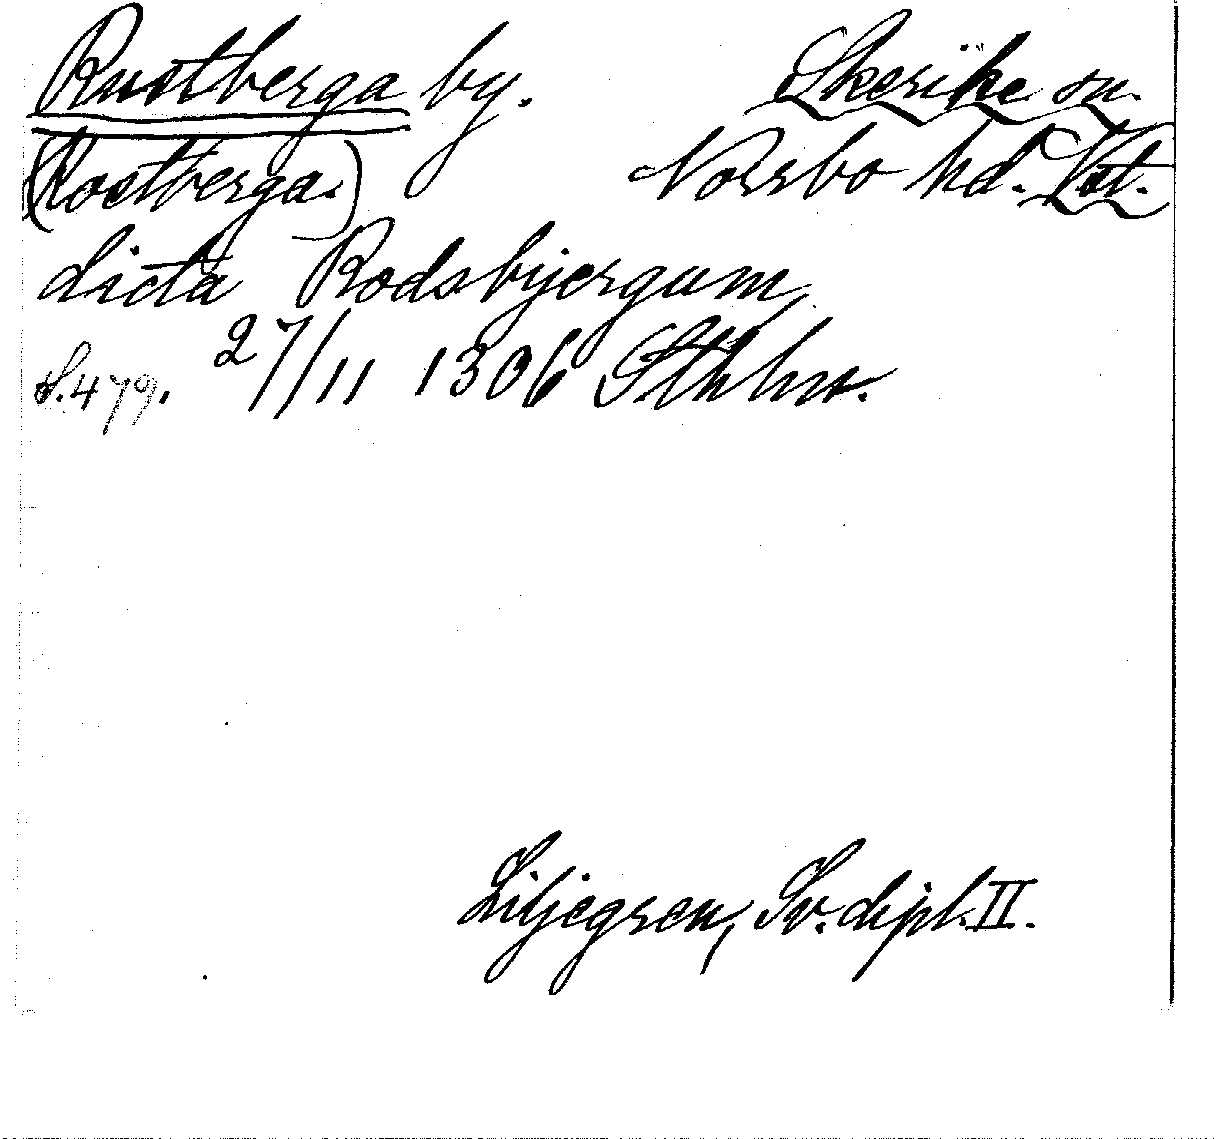 Rustberga by. Skerike sn.
(Rostberga.) Norrbo hd. Vstl.
dicta Rodsbyergum,
S. 479. 27/11 1306 Sthlm.
Liljegren, Sv. dipl. II.